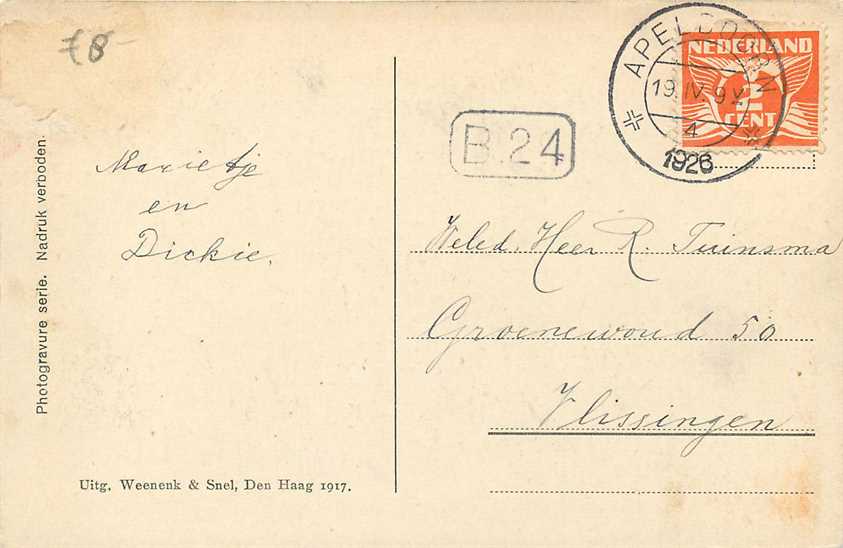 €8-
Photogravure serie. Nadruk verboden.
Marietje
en
Dickie.
Uitg. Weenenk & Snel, Den Haag 1917.
B.24
APELDOORN
19.IV 9V
4
1926
NEDERLAND
2
CENT
Weled. Heer R. Tuinsma
Groenewoud 50
Vlissingen